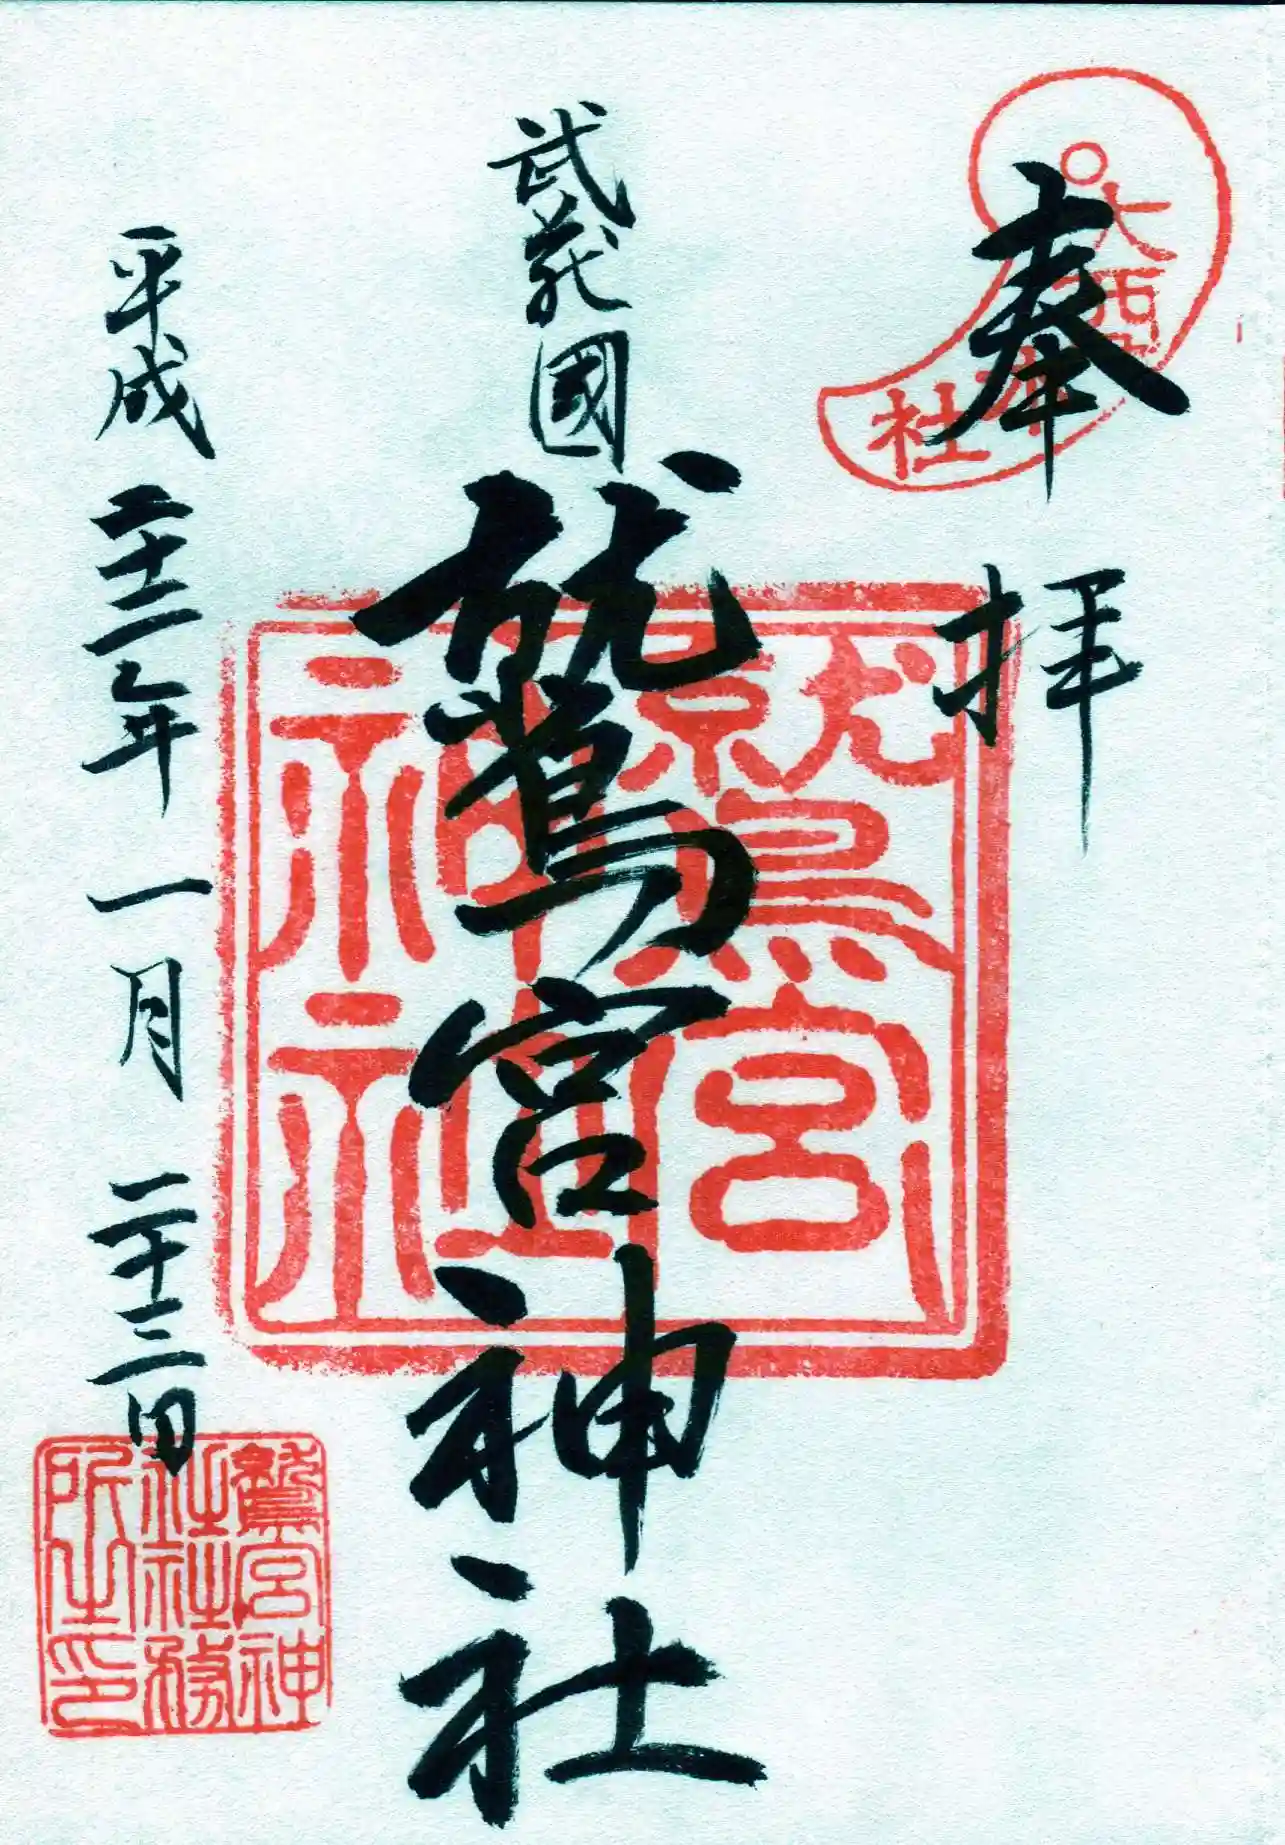 大酉本社
奉拝
武蔵國
鷲宮神社
鷲宮
神社
平成二十二年一月二十三日
鷲宮神
社社務
所之印